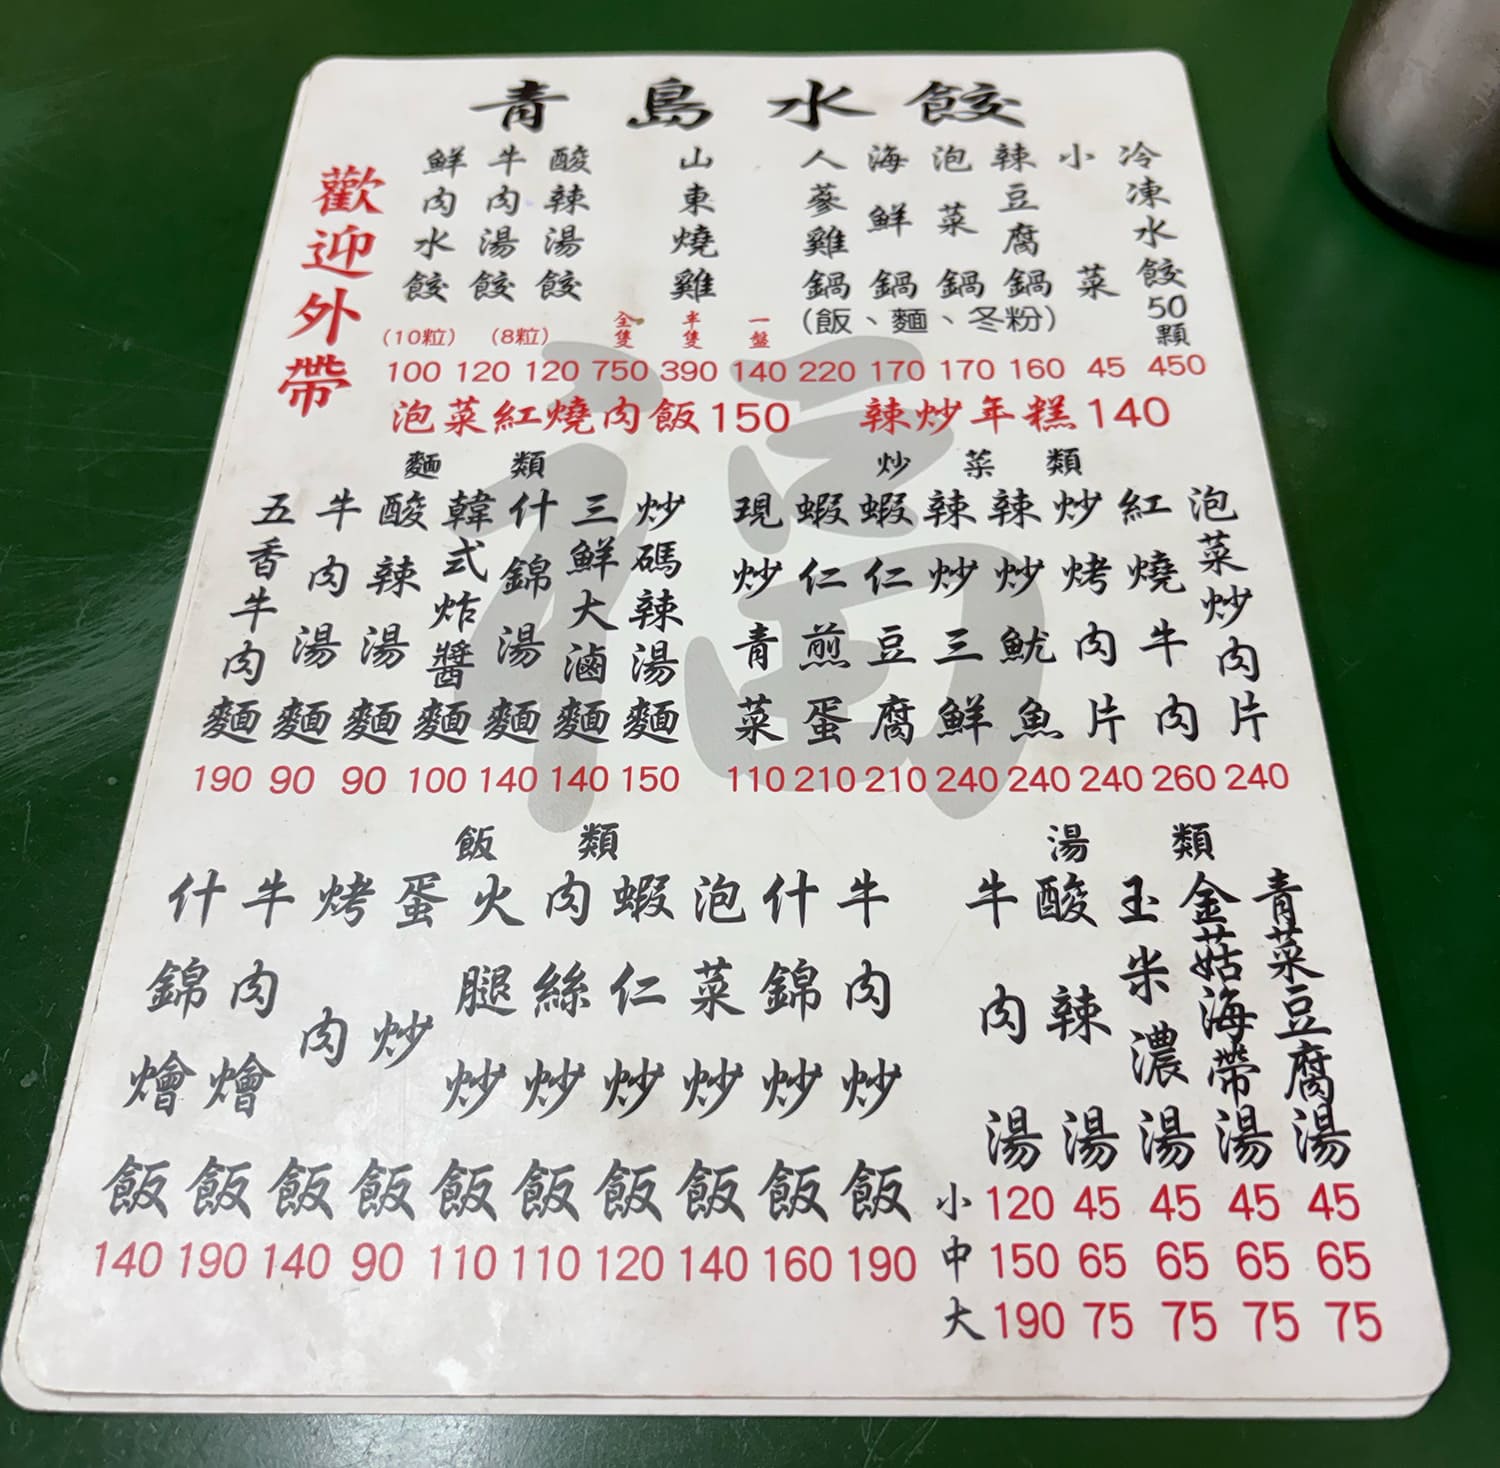 青島水餃
歡迎外帶
鮮肉水餃 (10粒) 100
牛肉湯餃 (8粒) 120
酸辣湯餃 120
山東燒雞 全隻 750 半隻 390 一盤 140
人蔘雞鍋 220
海鮮鍋 170
泡菜鍋 170
辣豆腐鍋 160
(飯、麵、冬粉)
小菜 45
冷凍水餃50顆 450
泡菜紅燒肉飯150
辣炒年糕140
麵類
五香牛肉麵 190
牛肉湯麵 90
酸辣湯麵 90
韓式炸醬麵 100
什錦湯麵 140
三鮮大滷麵 140
炒碼辣湯麵 150
炒菜類
現炒青菜 110
蝦仁煎蛋 210
蝦仁豆腐 210
辣炒三鮮 240
辣炒魷魚 240
炒烤肉片 240
紅燒牛肉 260
泡菜炒肉片 240
飯類
什錦燴飯 140
牛肉燴飯 190
烤肉飯 140
蛋炒飯 90
火腿炒飯 110
肉絲炒飯 110
蝦仁炒飯 120
泡菜炒飯 140
什錦炒飯 160
牛肉炒飯 190
湯類
牛肉湯 酸辣湯 玉米濃湯 金菇海帶湯 青菜豆腐湯
小 120 45 45 45 45
中 150 65 65 65 65
大 190 75 75 75 75
福